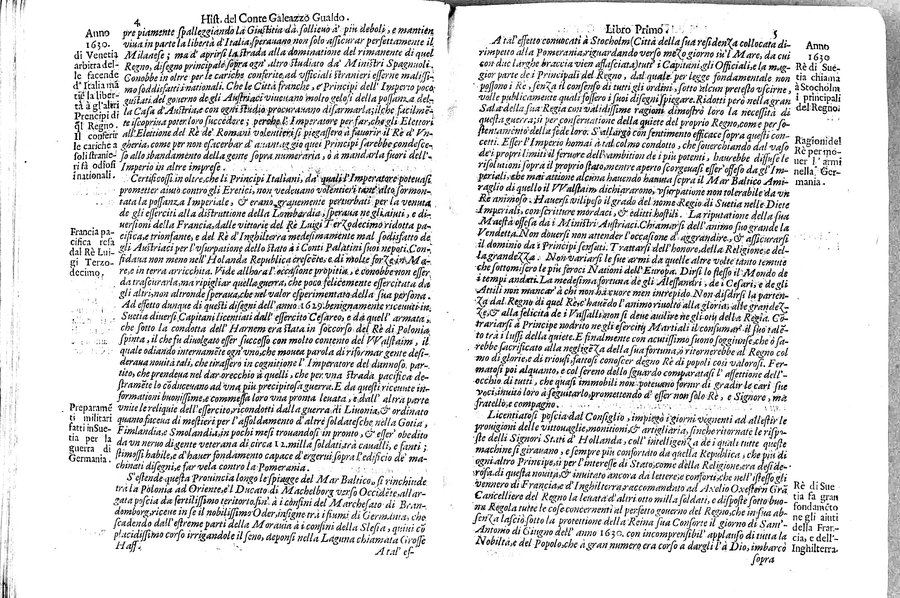 4
Hist. del Conte Galeazzo Gualdo.
Anno
1630.
di Venetia
arbitra del-
le facende
d'Italia mã
tiẽ la liber-
tà à gl'altri
Prencipi di
ql Regno.
Il conferir
le cariche a
soli stranie-
ri fà odiosi
i nationali.
Francia pa-
cifica resa
dal Rè Lui-
gi Terzo-
decimo.
Preparamẽ
ti militari
fatti in Sue
tia per la
guerra di
Germania.
pre piamente spalleggiando la Giustitia dà sollievo à i più deboli, e mantien
viua in parte la libertà d'Italia, sperauano non solo assicurar perfettamente il
Milanese; ma d'aprirsi la strada alla dominatione del rimanente di quel
Regno, disegno principale sopra ogn' altro studiato da' Ministri Spagnuoli.
Conobbe in oltre per le cariche conferite, ad vfficiali stranieri esserne malissi-
mo soddisfatti i nationali. Che le Città franche, e Prencipi dell'Imperio poco
gustati del gouerno de gli Austriaci viueuano molto gelosi della possanza del-
la Casa d'Austria, e con ogni studio procurauano disarmarla; ilche facilmen-
te si scopriua poter loro succedere; perche l'Imperatore per far, che gli Elettori
all'Elettione del Rè de' Romani volentieri si piegassero à fauorir il Rè d'Vn-
gheria, come per non esacerbar d'auantaggio quei Principi sarebbe condesce-
so allo sbandamento della gente sopra numeraria, ò à mandarla fuori dell'-
Imperio in altre imprese.
Certificossi in oltre, che li Principi Italiani, da' quali l'Imperatore poteuasi
prometter aiuto contro gli Eretici, non vedeuano volentieri tant' alto sormon-
tata la possanza Imperiale, & erano grauemente perturbati per la venuta
de gli esserciti alla distruttione della Lombardia, speraua ne gli aiuti, e di-
uersioni della Francia, dalle vittorie del Rè Luigi Terzodecimo ridotta pa-
cifica, e trionfante, e del Rè d'Inghilterra medesimamente mal sodisfatto de
gli Austriaci per l'vsurpatione dello stato à i Conti Palatini suoi nepoti. Con-
fidaua non meno nell'Holanda Republica crescente, e di molte forze in Ma-
re, e in terra arricchita. Vide allhora l'occasione propitia, e conobbe non esser
da trascurarla, ma ripigliar quella guerra, che poco felicemente essercitata da
gli altri, non altronde speraua, che nel valor esperimentato della sua persona.
Ad effetto dunque di questi disegni dell'anno 1619. benignamente riceuuti in
Suetia diuersi Capitani licentiati dall'essercito Cesareo, e da quell' armata,
che sotto la condotta dell' Harnem era stata in soccorso del Rè di Polonia
spinta, il che fù diuolgato esser successo con molto contento del VValstaim, il
quale odiando internamẽte ogn' vno, che moueua parola di riformar gente desi-
deraua nouità tali, che tirassero in cognitione l' Imperatore del dannoso par-
tito, che prendeua nel dar orecchio à quelli, che per vna strada pacifica de-
stramẽte lo cõduceuano ad vna più precipitosa guerra. E da questi riceuute in-
formationi buonissime, e commessa loro vna pronta leuata, e dall' altra parte
vnite le reliquie dell'essercito, ricondotti dalla guerra di Liuonia, & ordinato
quanto faceua di mestieri per l'assoldamento d'altre soldatesche nella Gotia,
Finlandia, e Smolandia, in pochi mesi trouandosi in pronto, & esser' obedito
da vn neruo di gente veterana di circa 12. mila soldati, trà caualli, e fanti;
stimossi habile, e d'hauer fondamento capace d'ergerui sopra l'edificio de' ma-
chinati disegni, e far vela contro la Pomerania.
S'estende questa Prouincia longo le spiagge del Mar Baltico, si rinchiude
trà la Polonia ad Oriente, e 'l Ducato di Machelborg verso Occidẽte, allar-
gata poscia da fertilissimo territorio, fin' à i confini del Marchesato di Bran-
demborg, riceue in se il nobilissimo Oder, insigne trà i fiumi di Germania, che
scadendo dall'estreme parti della Morauia à i confini della Slesia, quiui cõ
placidissimo corso irrigandole il seno, deponsi nella Laguna chiamata Grosse
Haff.
A tal' ef-
Libro Primo.
5
A tal' effetto conuocati à Stocholm (Città della sua residenza collocata di-
rimpetto alla Pomerania, riguardando verso mezzo giorno in' l Mare, da cui
con due larghe braccia vien affasciata) tutt' i Capitani, gli Officiali, e la mag-
gior parte de i Principali del Regno, dal quale per legge fondamentale non
possono i Rè, senza il consenso di tutti gli ordini, sotto alcun pretesto vscirne,
volle publicamente quali fossero i suoi disegni spiegare. Ridotti però nella gran
Sala della sua Regia con validissime ragioni dimostrò loro la necessità di
questa guerra; si per conseruatione della quiete del proprio Regno, come per so-
stentamento della fede loro. S'allargò con sentimento efficace sopra questi con-
cetti. Esser l'Imperio homai à tal colmo condotto, che souerchiando dal vaso
de' propri limiti il feruore dell'ambition de i più potenti, haurebbe diffuse le
risolutioni sopra il proprio stato, mentre aperto scorgeuasi esser offeso da gl'Im-
periali, che mai attione alcuna hauendo hauuta sopra il Mar Baltico Ami-
raglio di quello il VValstaim dichiararono, vsurpatione non tolerabile da vn
Rè animoso. Hauersi vilipeso il grado del nome Regio di Suetia nelle Diete
Imperiali, con scritture mordaci, & editti hostili. La riputatione della sua
Maestà offesa da i Ministri Austriaci. Chiamarsi dell'animo suo grande la
Vendetta. Non douersi non attender l'occasione d'aggrandire, & assicurarsi
il dominio da i Principi sensati. Trattarsi dell'honore, della Religione, e del-
la grandezza. Non variarsi le sue armi da quelle altre volte tanto temute
che sottomisero le più feroci Nationi dell'Europa. Dirsi lo stesso il Mondo de
i tempi andati. La medesima fortuna de gli Alessandri, de i Cesari, e de gli
Attili non mancar' à chi non hà xore men intrepido. Non disdirsi la parten-
za dal Regno di quel Rè, c' hauẽdo l'animo riuolto alla gloria, alle grandez-
ze, & alla felicità de i Vassalli, non si deue auilire ne gli otij della Regia. Cõ-
trariarsi à Principe nodrito ne gli esercitij Martiali il consumar il suo talẽ-
to trà i lussi della quiete. E finalmente con acutissimo suono soggiunse, che ò sa-
rebbe sacrificato alla negligẽza della sua fortuna, ò ritornerebbe al Regno col-
mo di glorie, e di triousi, fattosi conoscer degno Rè di popoli così valorosi. Fer-
matosi poi alquanto, e col sereno dello sguardo comparatasi l' assettione dell'-
occhio di tutti, che quasi immobili non poteuano formir di gradir le cari sue
voci, inuitò loro à seguitarlo, promettendo d' esser non solo Rè, e Signore, mà
fratello, e compagno.
Licentiatosi poscia dal Consiglio, impiegò i giorni vegnenti ad allestir le
prouigioni delle vittouaglie, monitioni, & artigliaria, finche ritornate le rispo-
ste delli Signori Stati d' Hollanda, coll' intelligenza de i quali tutte queste
machine si girauano, e sempre più confortato da quella Republica, che più di
ogni altro Principe, si per l'interesse di Stato, come della Religione, era deside-
rosa di questa nouità, & inuitato ancora da lettere, e conforti, che nell'istesso gli
vennero di Francia, e d'Inghilterra, raccomandato ad Axelio Oxestern Grã
Cancelliere del Regno la leuata d'altri otto milla soldati, e disposto sotto buo-
na Regola tutte le cose concernenti al perfetto gouerno del Regno, che in sua ab-
senza lasciò sotto la protettione della Reina sua Consorte il giorno di Sant'-
Antonio di Giugno dell' anno 1630. con incomprensibil' applauso di tutta la
Nobiltà, e del Popolo, che à gran numero era corso a dargli l'à Dio, imbarcò
sopra
Anno
1630
Rè di Sue
tia chiama
à Stocholm
i principali
del Regno.
Ragioni del
Rè per mo-
uer l' armi
nella Ger-
mania.
Rè di Sue
tia fa gran
fondamẽto
ne gli aiuti
della Fran-
cia, e dell'-
Inghilterra.